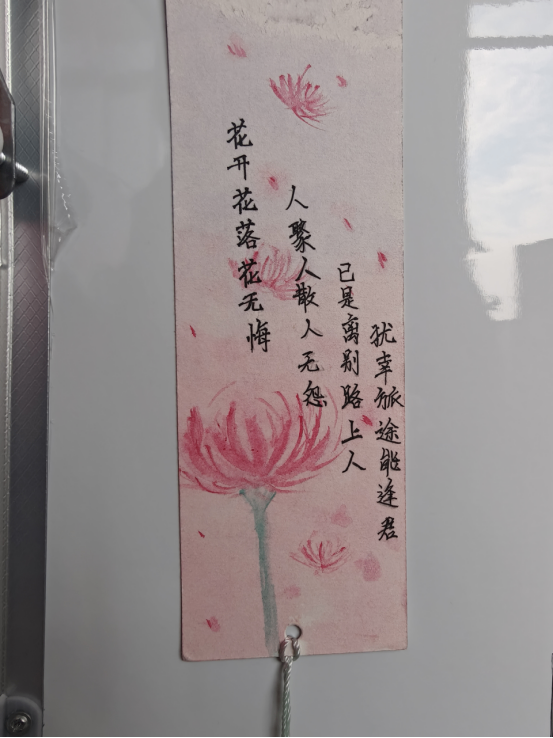 花开花落花无悔
人聚人散人无怨
已是离别路上人
犹幸旅途能逢君